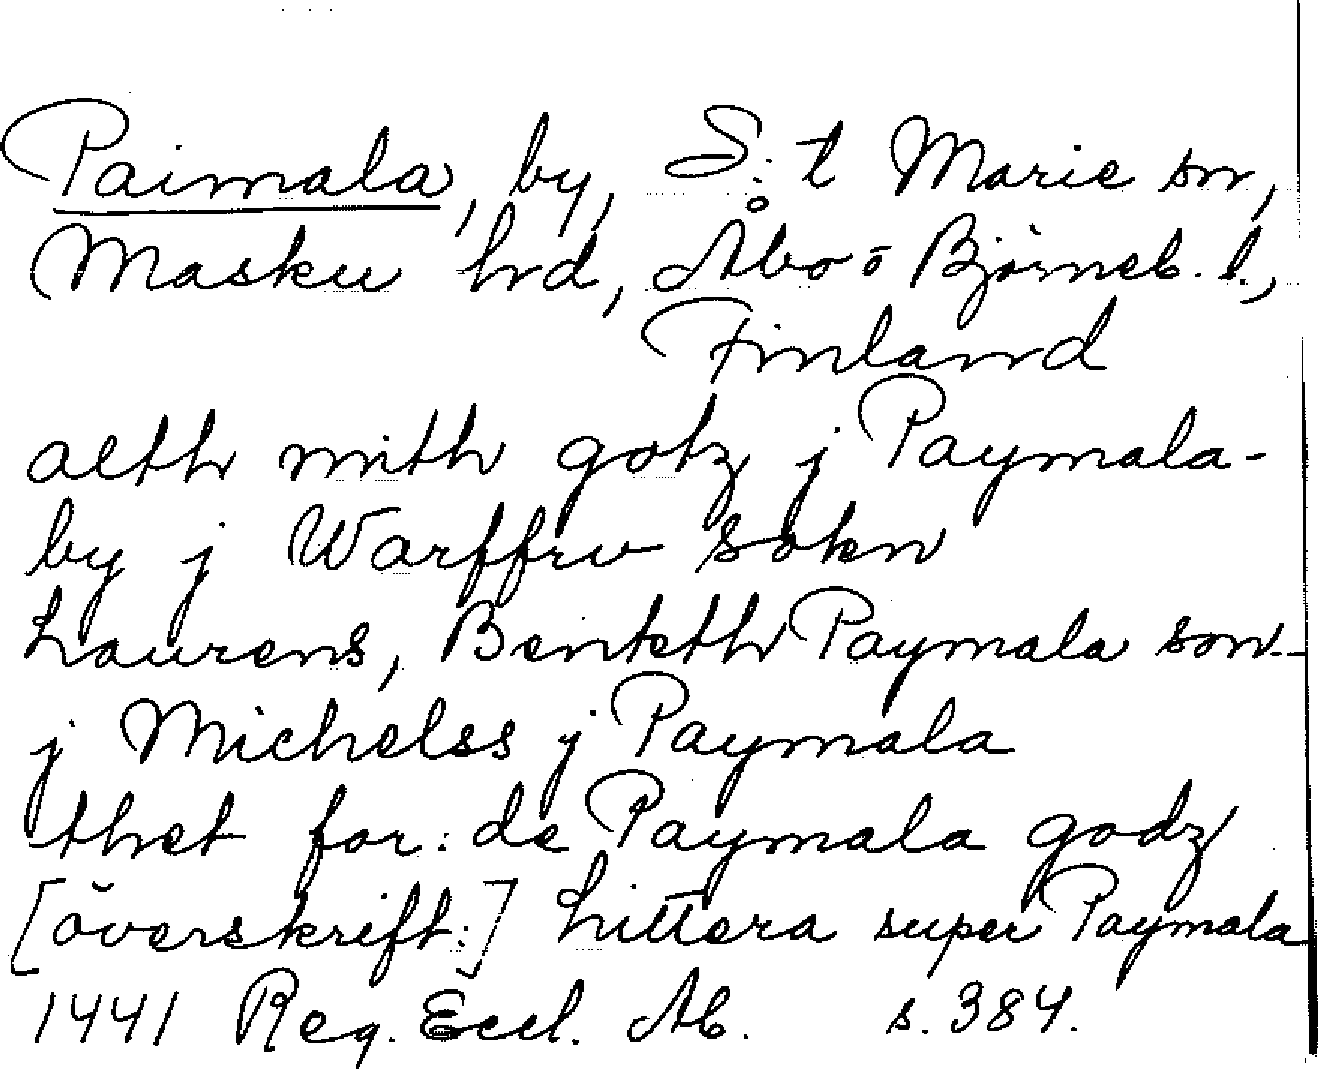 Paimala, by, S:t Marie sn,
Masku hrd, Åbo o Björneb. l.,
Finland
alth mith gotz j Paymala-
by j Warffrv sokn
Laurens, Benteth Paymala son-
j Michelss j Paymala
thet for:de Paymala godz
[överskrift:] Littera super Paymala
1441 Reg. Eccl. Ab. s. 384.